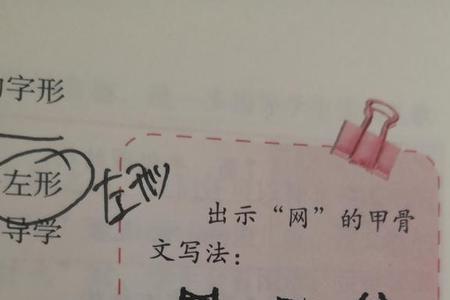 字形
左形
左形
导学
出示“网”的甲骨
文写法：